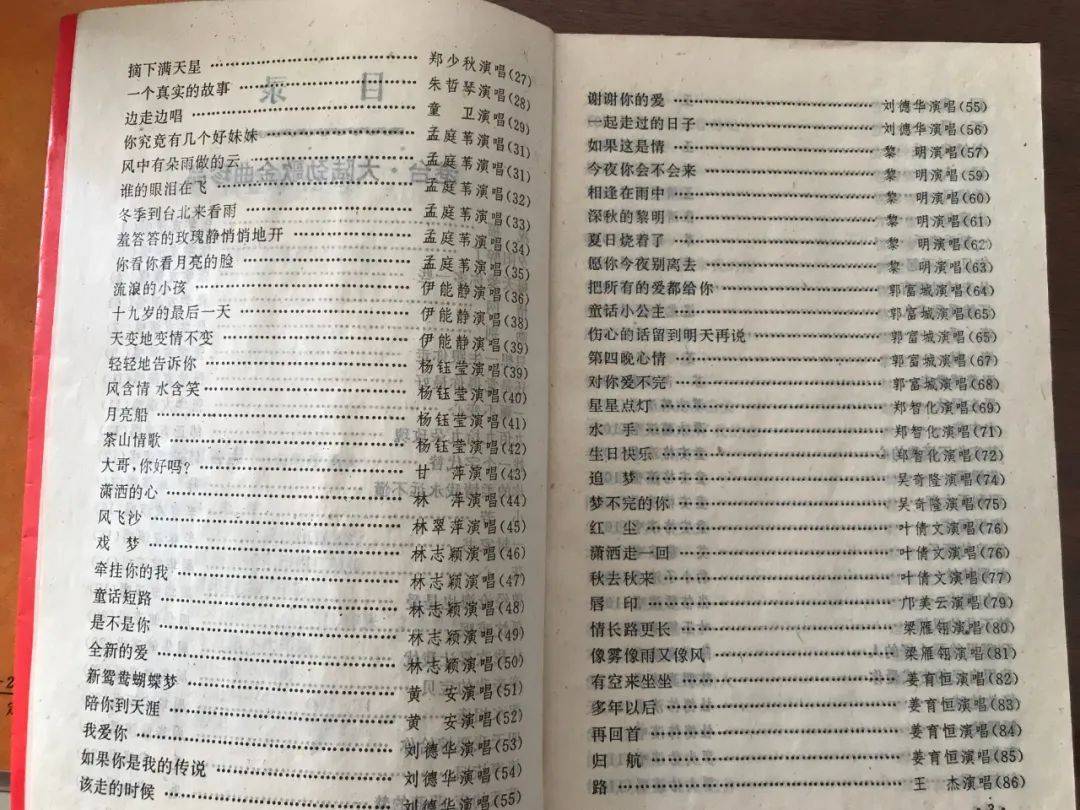 摘下满天星……郑少秋演唱(27)
一个真实的故事……朱哲琴演唱(28)
边走边唱……童　卫演唱(29)
你究竟有几个好妹妹……孟庭苇演唱(31)
风中有朵雨做的云……孟庭苇演唱(31)
谁的眼泪在飞……孟庭苇演唱(32)
冬季到台北来看雨……孟庭苇演唱(33)
羞答答的玫瑰静悄悄地开……孟庭苇演唱(34)
你看你看月亮的脸……孟庭苇演唱(35)
流浪的小孩……伊能静演唱(36)
十九岁的最后一天……伊能静演唱(38)
天变地变情不变……伊能静演唱(39)
轻轻地告诉你……杨钰莹演唱(39)
风含情 水含笑……杨钰莹演唱(40)
月亮船……杨钰莹演唱(41)
茶山情歌……杨钰莹演唱(42)
大哥,你好吗?……甘　萍演唱(43)
潇洒的心……林　萍演唱(44)
风飞沙……林翠萍演唱(45)
戏　梦……林志颖演唱(46)
牵挂你的我……林志颖演唱(47)
童话短路……林志颖演唱(48)
是不是你……林志颖演唱(49)
全新的爱……林志颖演唱(50)
新鸳鸯蝴蝶梦……黄　安演唱(51)
陪你到天涯……黄　安演唱(52)
我爱你……刘德华演唱(53)
如果你是我的传说……刘德华演唱(54)
该走的时候……刘德华演唱(55)
谢谢你的爱……刘德华演唱(55)
一起走过的日子……刘德华演唱(56)
如果这是情……黎　明演唱(57)
今夜你会不会来……黎　明演唱(59)
相逢在雨中……黎　明演唱(60)
深秋的黎明……黎　明演唱(61)
夏日烧着了……黎　明演唱(62)
愿你今夜别离去……黎　明演唱(63)
把所有的爱都给你……郭富城演唱(64)
童话小公主……郭富城演唱(65)
伤心的话留到明天再说……郭富城演唱(65)
第四晚心情……郭富城演唱(67)
对你爱不完……郭富城演唱(68)
星星点灯……郑智化演唱(69)
水　手……郑智化演唱(71)
生日快乐……郑智化演唱(72)
追　梦……吴奇隆演唱(74)
梦不完的你……吴奇隆演唱(75)
红　尘……叶倩文演唱(76)
潇洒走一回……叶倩文演唱(76)
秋去秋来……叶倩文演唱(77)
唇　印……邝美云演唱(79)
情长路更长……梁雁翎演唱(80)
像雾像雨又像风……梁雁翎演唱(81)
有空来坐坐……姜育恒演唱(82)
多年以后……姜育恒演唱(83)
再回首……姜育恒演唱(84)
归　航……姜育恒演唱(85)
路……王　杰演唱(86)